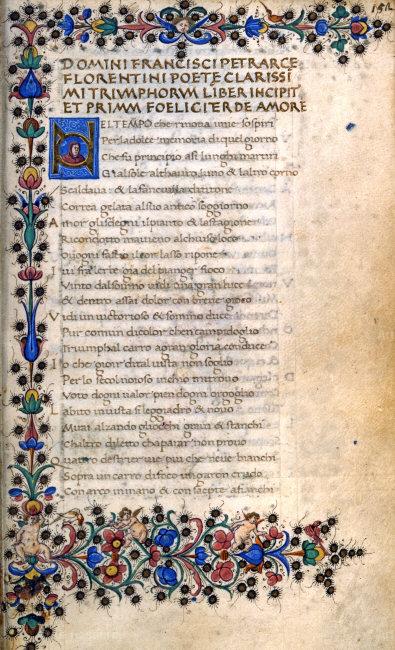 151
DOMINI FRANCISCI PETRARCE
FLORENTINI POETE CLARISSI
MI TRIVMPHORVM LIBER INCIPIT
ET PRIMVM FOELICITER DE AMORE
NEL TEMPO che rinova i mie sospiri
Per la dolce memoria di quel giorno
Che fu principio asi lunghi martiri
Gia l sole al thauro luno & laltro corno
Scaldava & la fanciulla di titone
Correa gelata al suo antico soggiorno
Amor gli sdegni il pianto & la stagione
Ricondotto maveno al chiuso loco
Ovogni fascio il cor lasso ripone
Ivi fra lerbe gia del pianger fioco
Vinto dal sonno vidi una gran luce
& dentro assai dolor con breve gioco
Vidi un victorioso & sommo duce
Pur comun di color chen campidoglio
Triumphal carro a gran gloria conduce
Io che gioir di tal vista non soglio
Per lo secol noioso in chio mi trovo
Voto dogni valor pien dogni orgoglio
Labito in vista si leggiadro & novo
Mirai alzando gliocchi gravi & stanchi
Chaltro diletto chaparar non provo
Quatro destrier vie piu che neve bianchi
Sopra un carro di foco un garzon crudo
Con arco in mano & con saepte a fianchi